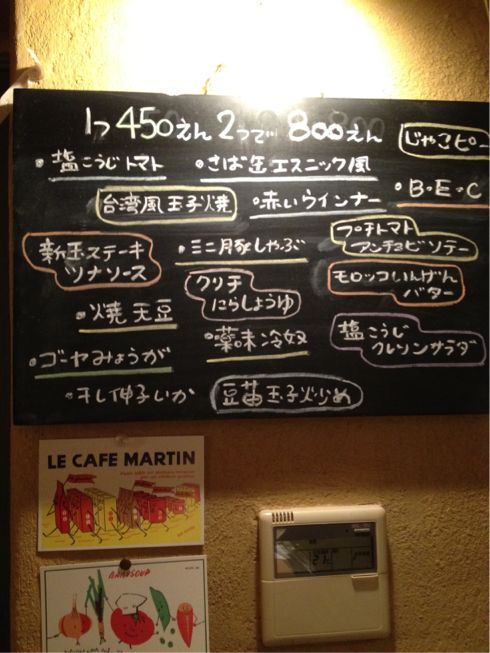 1つ450えん 2つで 800えん
じゃこピー
・塩こうじトマト
・さば缶エスニック風
・B・E・C
台湾風玉子焼
・赤いウインナー
プチトマト
アンチョビソテー
新玉ステーキ
ツナソース
・ミニ豚しゃぶ
クリチ
にらしょうゆ
モロッコいんげん
バター
・焼天豆
・薬味冷奴
塩こうじ
クレソンサラダ
・ゴーヤみょうが
・干し伸子いか
豆苗玉子炒め
LE CAFE MARTIN
BABYSOUP